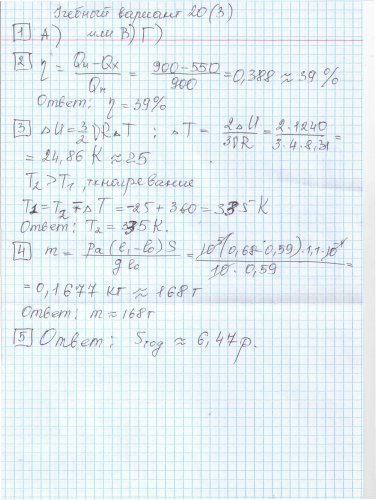 Учебный вариант 20 (3)
1 А) или В) Г)
2 η = Qн - Qх / Qн = 900 - 550 / 900 = 0,388 ≈ 39 %
Ответ: η = 39%
3 ΔU = 3/2 νRΔT ; ΔT = 2ΔU / 3νR = 2·1240 / 3·4·8,31 =
= 24,86 К ≈ 25
T2 > T1,
T1 = T2 - ΔT = -25 + 360 = 335 К
Ответ: T2 = 335 К.
4 m = pа (l1 - l0) S / g l0 = 10⁵ (0,68 - 0,59)·1,1·10⁻⁴ / 10·0,59 =
= 0,1677 кг ≈ 168 г
Ответ: m ≈ 168 г
5 Ответ: Sгод ≈ 6,47 р.